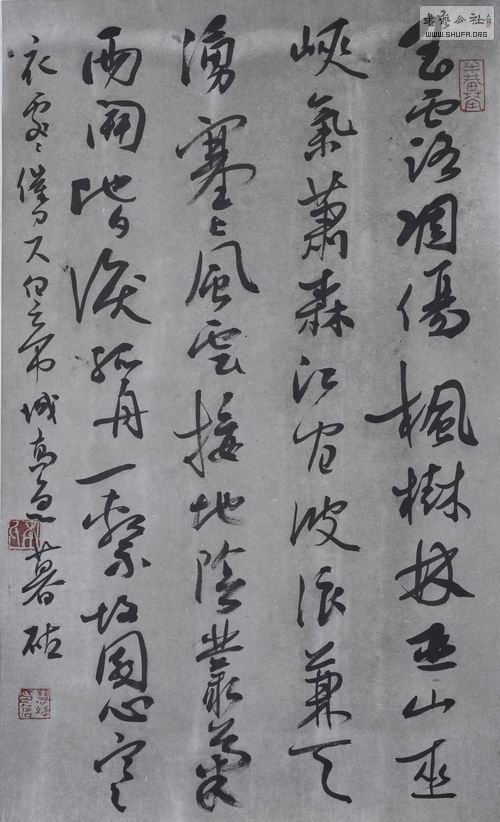 玉露凋傷楓樹林巫山巫
峽氣蕭森江間波浪兼天
湧塞上風雲接地陰叢菊
兩開他日淚孤舟一繫故園心寒
衣處〻催刀尺白帝城高急暮砧
书艺公社
WWW.SHUFA.ORG